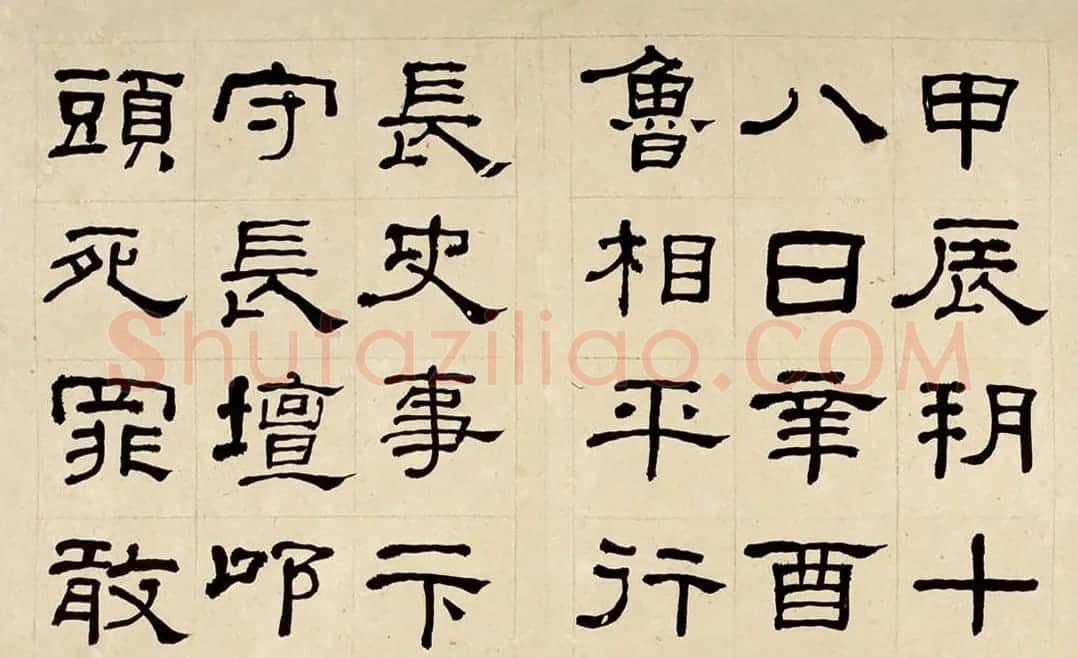 甲辰朔十
八日辛酉
魯相平行
長史事卞
守長壇叩
頭死罪敢
Shufaziliao.COM